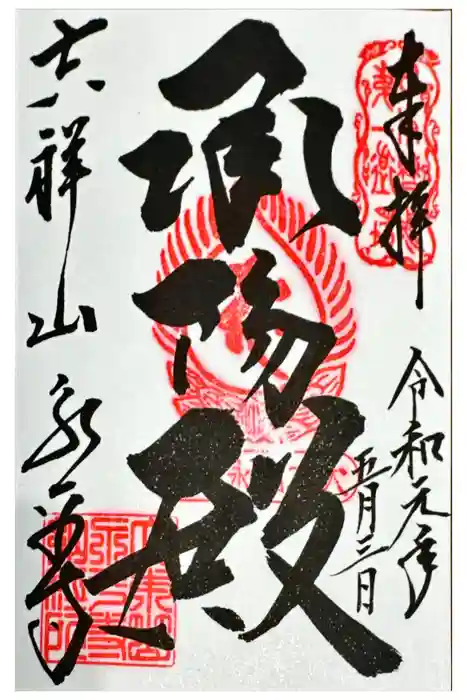 奉拝
令和元年
五月三日
承陽殿
吉祥山永平寺